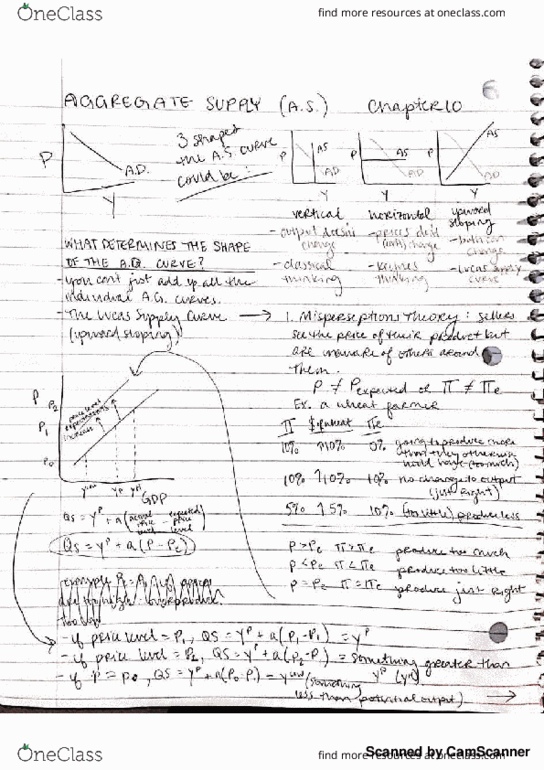 OneClass
find more resources at oneclass.com
AGGREGATE SUPPLY (A.S.) Chapter 10
P
A.D.
Y
3 shaped
the A.S. curve
could be:
P AS AD Y
P AS AD Y
P AS AD Y
vertical
- output doesn't change
- classical thinking
horizontal
- prices don't change
- Keynes thinking
upward sloping
- both can change
- Lucas supply curve
WHAT DETERMINES THE SHAPE
OF THE A.S. CURVE?
- you can't just add up all the
individual A.S. curves.
- The Lucas Supply Curve
(upward sloping)
1. Misperceptions Theory: sellers
see the price of their product but
are unaware of others around
them.
P ≠ Pexpected or π ≠ πe
Ex. a wheat farmer
π $ wheat πe
10% ↑10% 0% going to produce more
than they otherwise
would have (too much)
10% ↑10% 10% no change to output
(just right)
5% ↑5% 10% (too little) produce less
P > Pe π > πe produce too much
P < Pe π < πe produce too little
P = Pe π = πe produce just right
P P2
P1
P0
price level
expectations
increase
GDP
QS = yP + a(actual price level - expected price level)
QS = yP + a(P - Pe)
- if price level = P1, QS = yP + a(P1-P1) = yP
- if price level = P2, QS = yP + a(P2-P1) = something greater than
yP
- if P = P0, QS = yP + a(P0-P1) = (something
less than potential output)
OneClass
find more resources at oneclass.com
Scanned by CamScanner